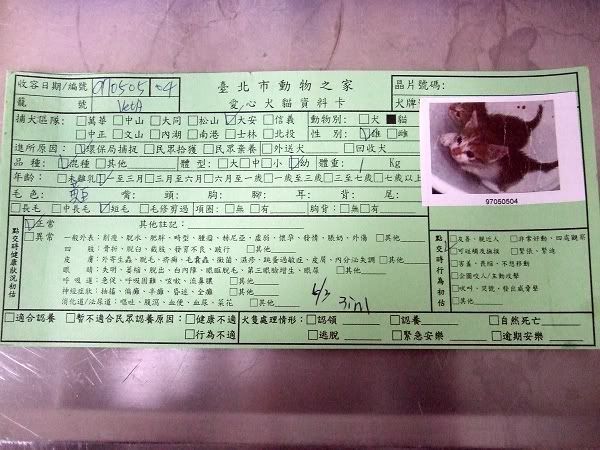 收容日期/編號 0970505 04 臺北市動物之家 晶片號碼:
籠 號 愛心犬貓資料卡 犬牌
捕犬區隊: □萬華 □中山 □大同 □松山 ☑大安 □信義 動物別: □犬 ■貓
□中正 □文山 □內湖 □南港 □士林 □北投 性別: ☑雄 □雌
進所原因: ☑環保局捕捉 □民眾拾獲 □民眾棄養 □外送犬 □回收犬
品種: ☑混種 □其他 體型: □大 □中 □小 ☑幼 體重: 1 Kg
年齡: □未離乳 ☑一至三月 □三月至六月 □六月至一歲 □一歲至三歲 □三至七歲 □七歲以上
毛色: 嘴: 頭: 胸: 腳: 耳: 背: 尾:
□長毛 □中長毛 ☑短毛 □毛修剪過 項圈: □無 □有 胸背: □無 □有
97050504
點交時健康狀況初估
☑正常 其他註記:
□異常 一般外表: 削瘦、脫水、肥胖、畸型、腫瘤、赫尼亞、虛弱、懷孕、發情、脹奶、外傷 □其他
四肢: 骨折、脫臼、截肢、發育不良、跛行 □其他
皮膚: 外寄生蟲、脫毛、疥癬、毛囊蟲、黴菌、濕疹、跳蚤過敏症、皮屑、內分泌失調 □其他
眼睛: 失明、萎縮、脫出、白內障、眼瞼脫毛、第三眼瞼增生、眼屎 □其他
呼吸道: 急促、呼吸困難、咳嗽、流鼻膿 □其他
神經症狀: 抬著、偏癱、半癱、昏迷、全癱 □其他
消化道/泌尿道: 嘔吐、腹瀉、血便、血尿、菜花 □其他
6/3 3in1
點交時行為初估
□友善、親近人 □非常好動、四處觀察
□可近補及撫摸 □緊張、緊迫
□害羞、畏縮、不想移動
□企圖咬人/主動攻擊
□吠叫、哭號、發出威脅聲
□其他
□適合認養 □暫不適合民眾認養原因: □健康不適 □行為不適
犬隻處理情形: □認領 □認養 □自然死亡
□逃脫 □緊急安樂 □逾期安樂